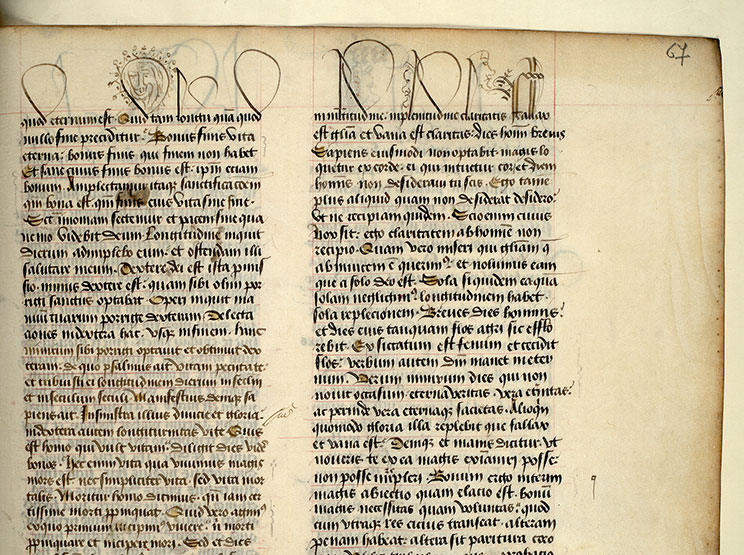 67
quod eternum est. Quid tam longum quam quod
nullo fine preciditur. Bonus finis vita
eterna: bonus finis qui finem non habet
Et sane cuius finis bonus est. ipm eciam
bonum. Amplectamur itaque sanctificacoem
qm bona est. qm finis eius vita sine fine.
nemo videbit deum. Longitudine inquit
dierum adimplebo eum: et ostendam illi
salutare meum. Dextere dei est ista promis
sio. munus dextere est: quam sibi obim por
rigi sanctus optabat. Operi inquit ma
nuum tuarum porrige dexteram. Delecta
ciones in dextera tua. vsque in finem. hanc
sibi porrigi optauit et obtinuit dex
teram: de quo psalmus ait vitam peciit a te
et tribuisti ei longitudinem dierum in sclm
et in seculum seculi. Manifestius denique sa
piens ait. In sinistra illius diuicie et gloria.
in dextera autem longiturnitas vite. Quis
est homo qui vult vitam: diligit dies videre
bonos. Hec enim vita qua viuimus magis
mors est: nec simpliciter vita. sed vita mor
talis. Moritur homo dicimus. qn iam cer
tissime morti ppinquat. Quid vero agimus
ex quo primum incipimus viuere: nisi morti
ppinquare et incipere mori. Sed et dies
in multitudine. in plenitudine claritatis. Fallax
est glia et vana est claritas: dies homi breuis
Sapiens eiusmodi non optabit. magis lo
quetur ex corde. ei qui intuetur cor: et diem
hominis non desideraui tu scis. Ego tamen
plus aliquid quam non desiderat desidero:
vt ne recipiam quidem. Scio enim cuius
vox sit: ego claritatem ab homine non
recipio. Quam vero miseri qui gliam q
ab inuicem e querimus. et nolumus eam
que a solo deo est. Sola siquidem ea qua
solam negligimus longitudinem habet.
sola replecionem. Breues dies hominis:
et dies eius tanquam flos agri sic efflo
rebit. Exsiccatum est fenum et cecidit
flos: verbum autem dni manet in eter
num. Verum nimirum dies qui non
nouit occasum. eterna veritas. vera eternitas:
ac perinde vera eternaque sacietas. Alioqn
quomodo gloria illa replebit que fallax
et vana est. Denique et inanis dicitur. vt
noueris te ex ea magis exinaniri posse:
non posse impleri. Bonum ergo interim
magis abiectio quam elacio est. bonum
magis necessitas quam voluntas. quod
cum vtraque res cicius transeat. alteram
penam habeat. altera sit paritura coro